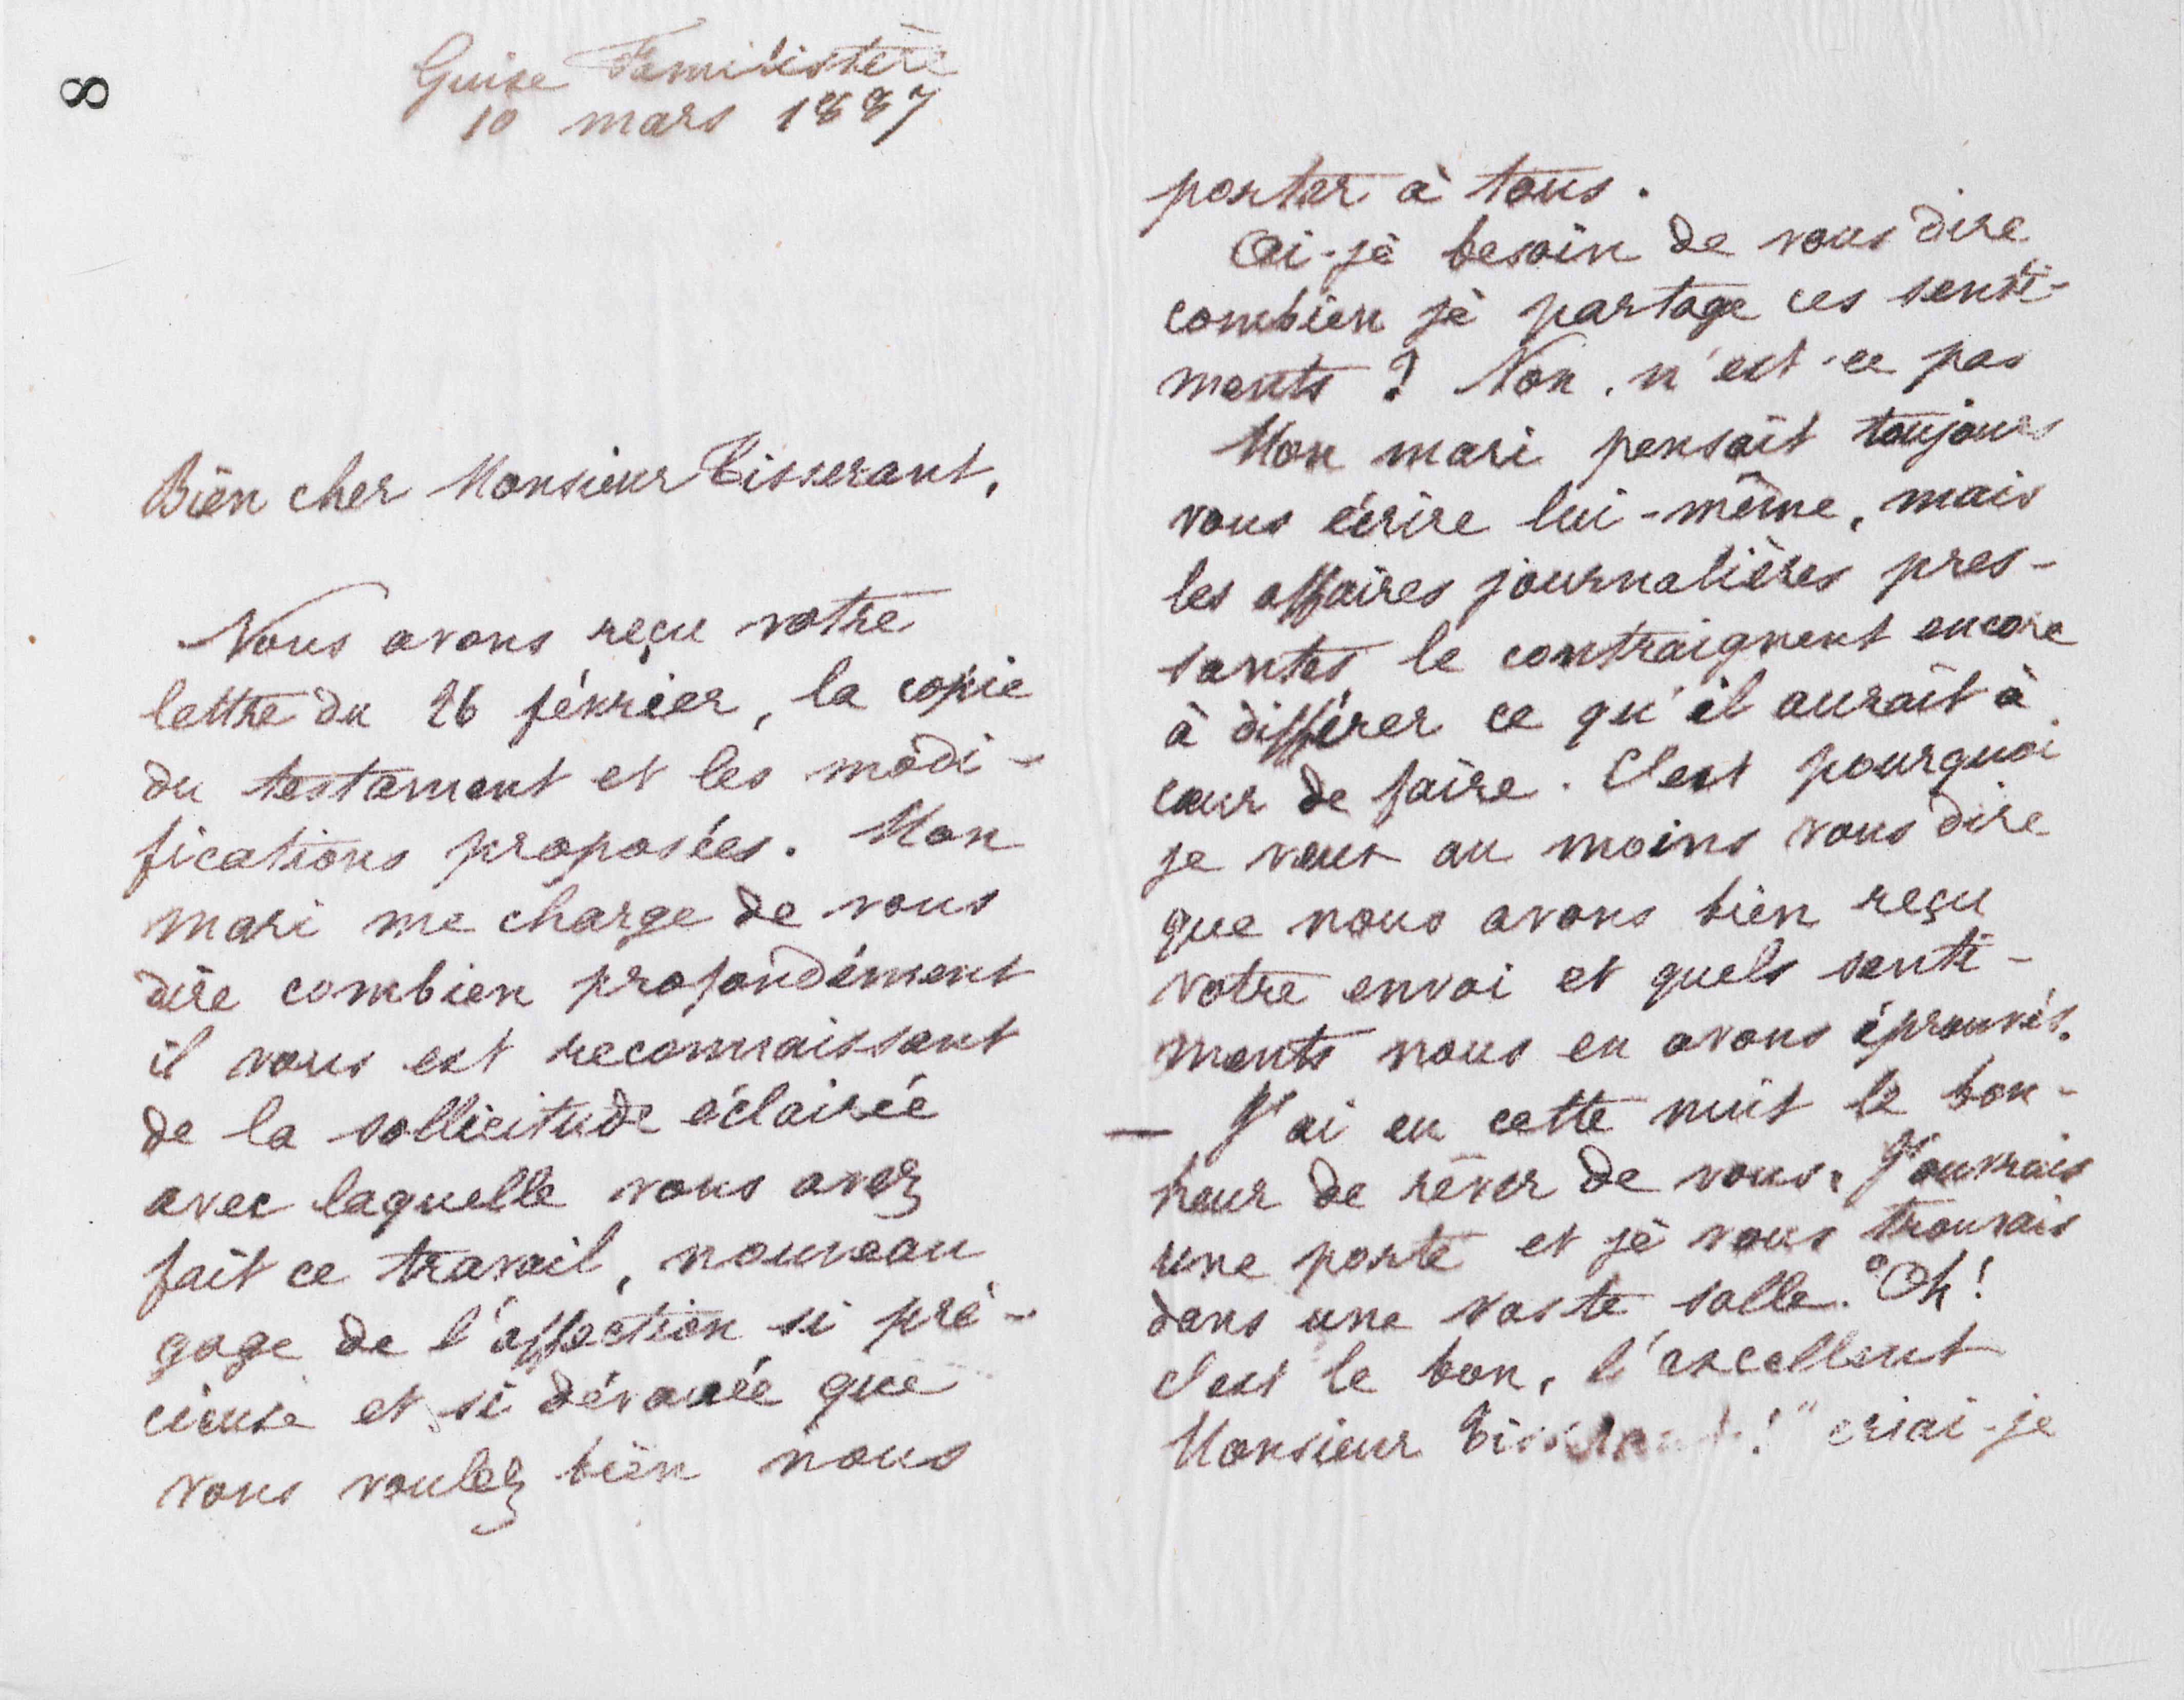 8
Guise Familistère
10 mars 1887
Bien cher Monsieur Tisserant,
Nous avons reçu votre
lettre du 26 février, la copie
du testament et les modi-
fications proposées. Mon
mari me charge de vous
dire combien profondément
il vous est reconnaissant
de la sollicitude éclairée
avec laquelle vous avez
fait ce travail, nouveau
gage de l'affection si pré-
cieuse et si dévouée que
vous voulez bien nous
porter à tous.
Ai-je besoin de vous dire
combien je partage ces senti-
ments ? Non, n'est-ce pas
Mon mari pensait toujours
vous écrire lui-même, mais
les affaires journalières pres-
santes le contraignent encore
à différer ce qu'il aurait à
cœur de faire. C'est pourquoi
je veux au moins vous dire
que nous avons bien reçu
votre envoi et quels senti-
ments nous en avons éprouvés.
— J'ai eu cette nuit le bon-
heur de rêver de vous. J'ouvrais
une porte et je vous trouvais
dans une vaste salle. "Oh!
c'est le bon, l'excellent
Monsieur Tisserant!" criai-je